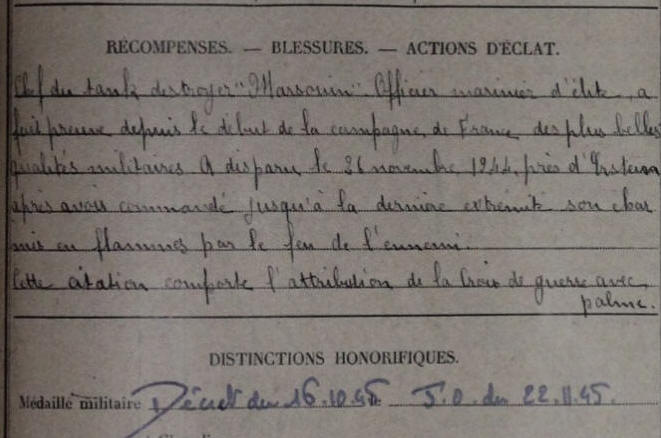 RÉCOMPENSES. — BLESSURES. — ACTIONS D'ÉCLAT.
Chef du tank destroyer "Marsouin". Officier marinier d'élite, a
fait preuve depuis le début de la campagne de France des plus belles
qualités militaires A disparu le 26 novembre 1944, près d'Erstein
après avoir commandé jusqu'à la dernière extremité son char
mis en flammes par le feu de l'ennemi.
Cette citation comporte l'attribution de la Croix de guerre avec
palme.
DISTINCTIONS HONORIFIQUES.
Médaille militaire Décret du 16.10.45. J.O. du 22.11.45.